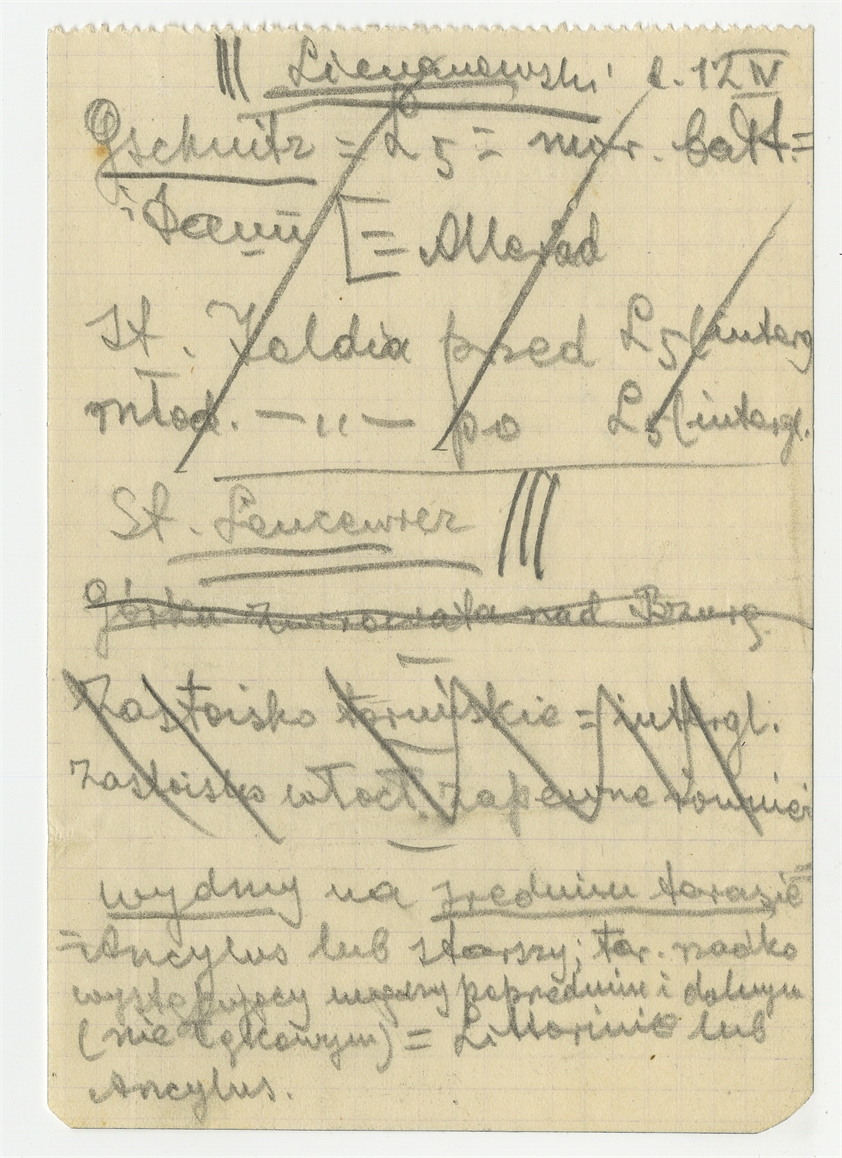 III Limanowski d. 12 IV
Gschnitz = L5 = mor. bałt. =
i Daun [= Alleröd
St. Yoldia przed L5 (interg
młod. — „ — po L5 (intergl.
St. Lencewicz III
Górka żwirowata nad Bzurą
Zastoisko toruńskie = intergl.
Zastoisko włocł. zapewne również
wydmy na średnim tarasie
= Ancylus lub starszy; tar. rzadko
występujący między poprzednim i dolnym
(nie łąkowym) = Littorinie lub
Ancylus.